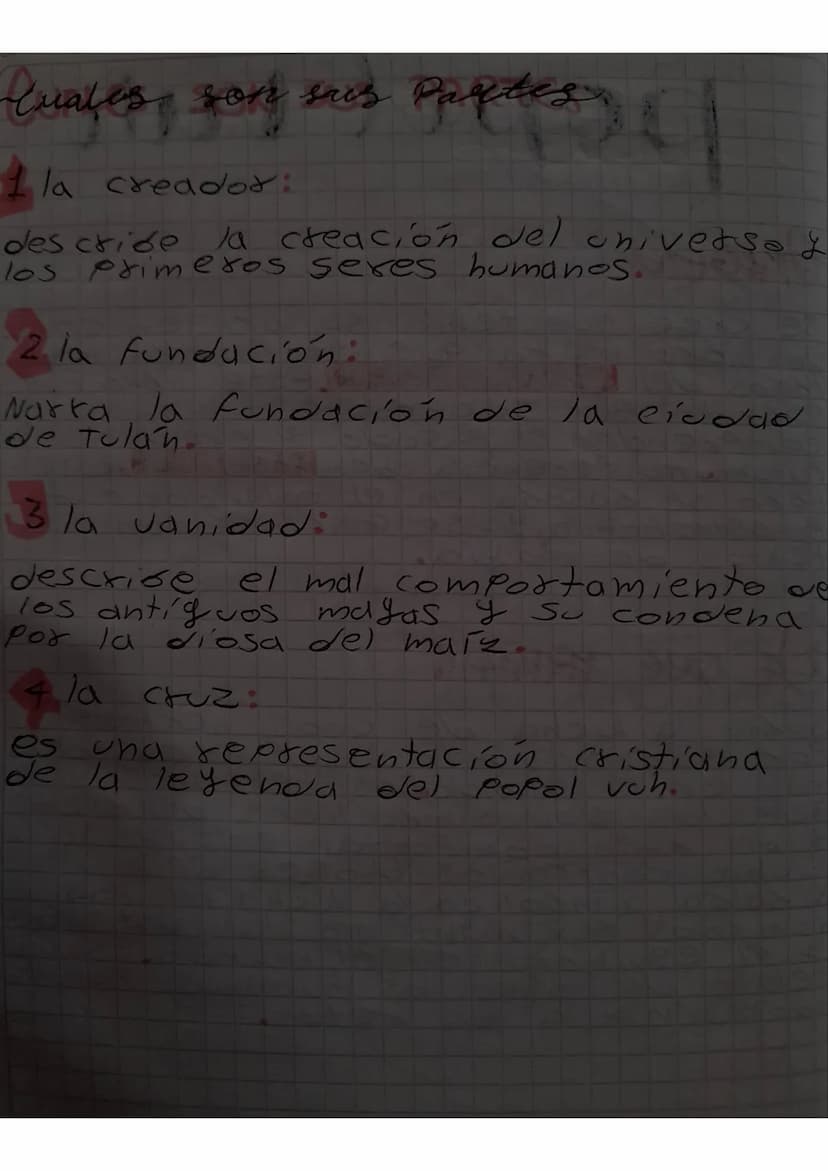 Cuales son sus Partes.
1 la creador:
describe la creación del universo y
los primeros seres humanos.
2 la fundación:
Narra la fundación de la ciudad
de Tulán.
3 la vanidad:
describe el mal comportamiento de
los antíguos mayas y su condena
por la diosa del maíz.
4 la cruz:
es una representación cristiana
de la leyenda del popol vuh.